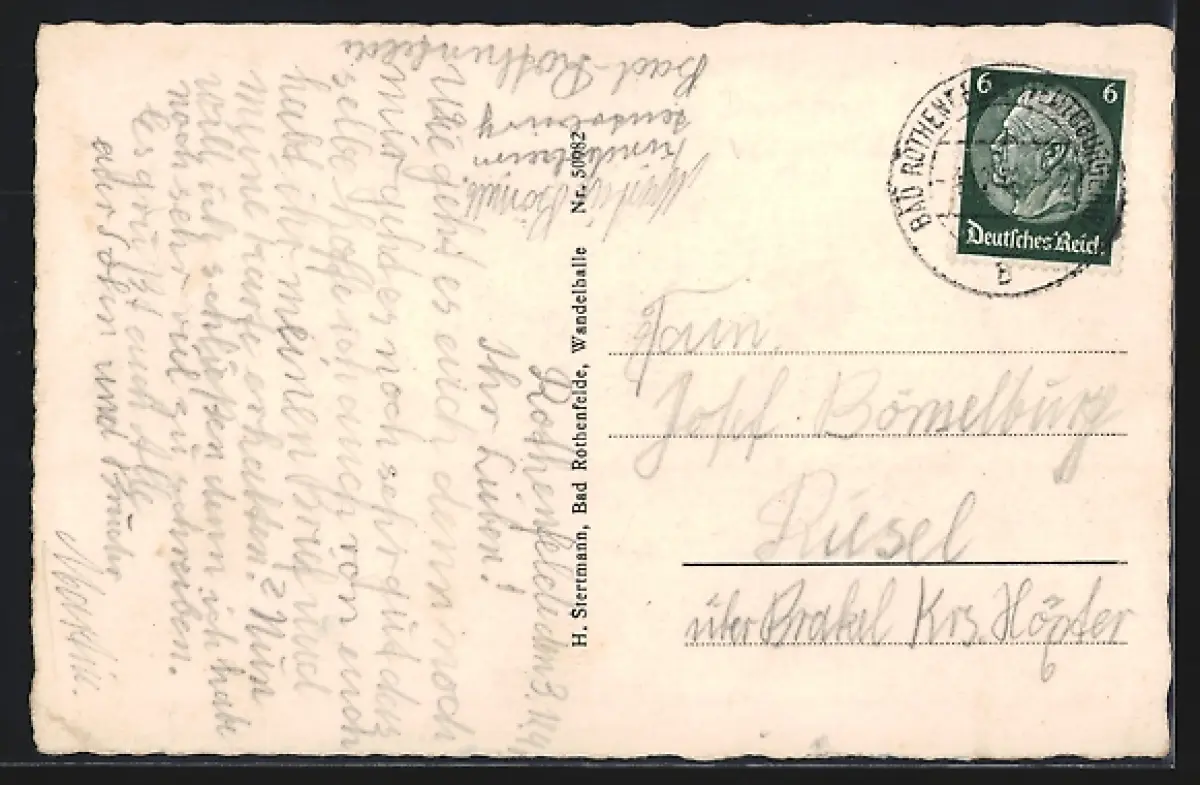 Rothenfelde den 3.11.4
Ihr Lieben!
Wie geht es euch denn noch
mir geht es noch sehr gut das
selbe hoffe ich auch von euch
habt ihr meinen Brief und
meine Karte erhalten? Nun
will ich schließen denn ich habe
noch sehr viel zu schreiben.
Es grüßt euch Alle
euer Sohn und Bruder
Martin.
Martin Bömelb.
Kinderheim
Teutoburg
Bad Rothenfelde
H. Stertmann, Bad Rothenfelde, Wandelhalle Nr. 50982
6 6
Deutsches Reich
BAD ROTHENF
b
Fam.
Josef Bömelburg
Riesel
über Brakel Krs Höxter